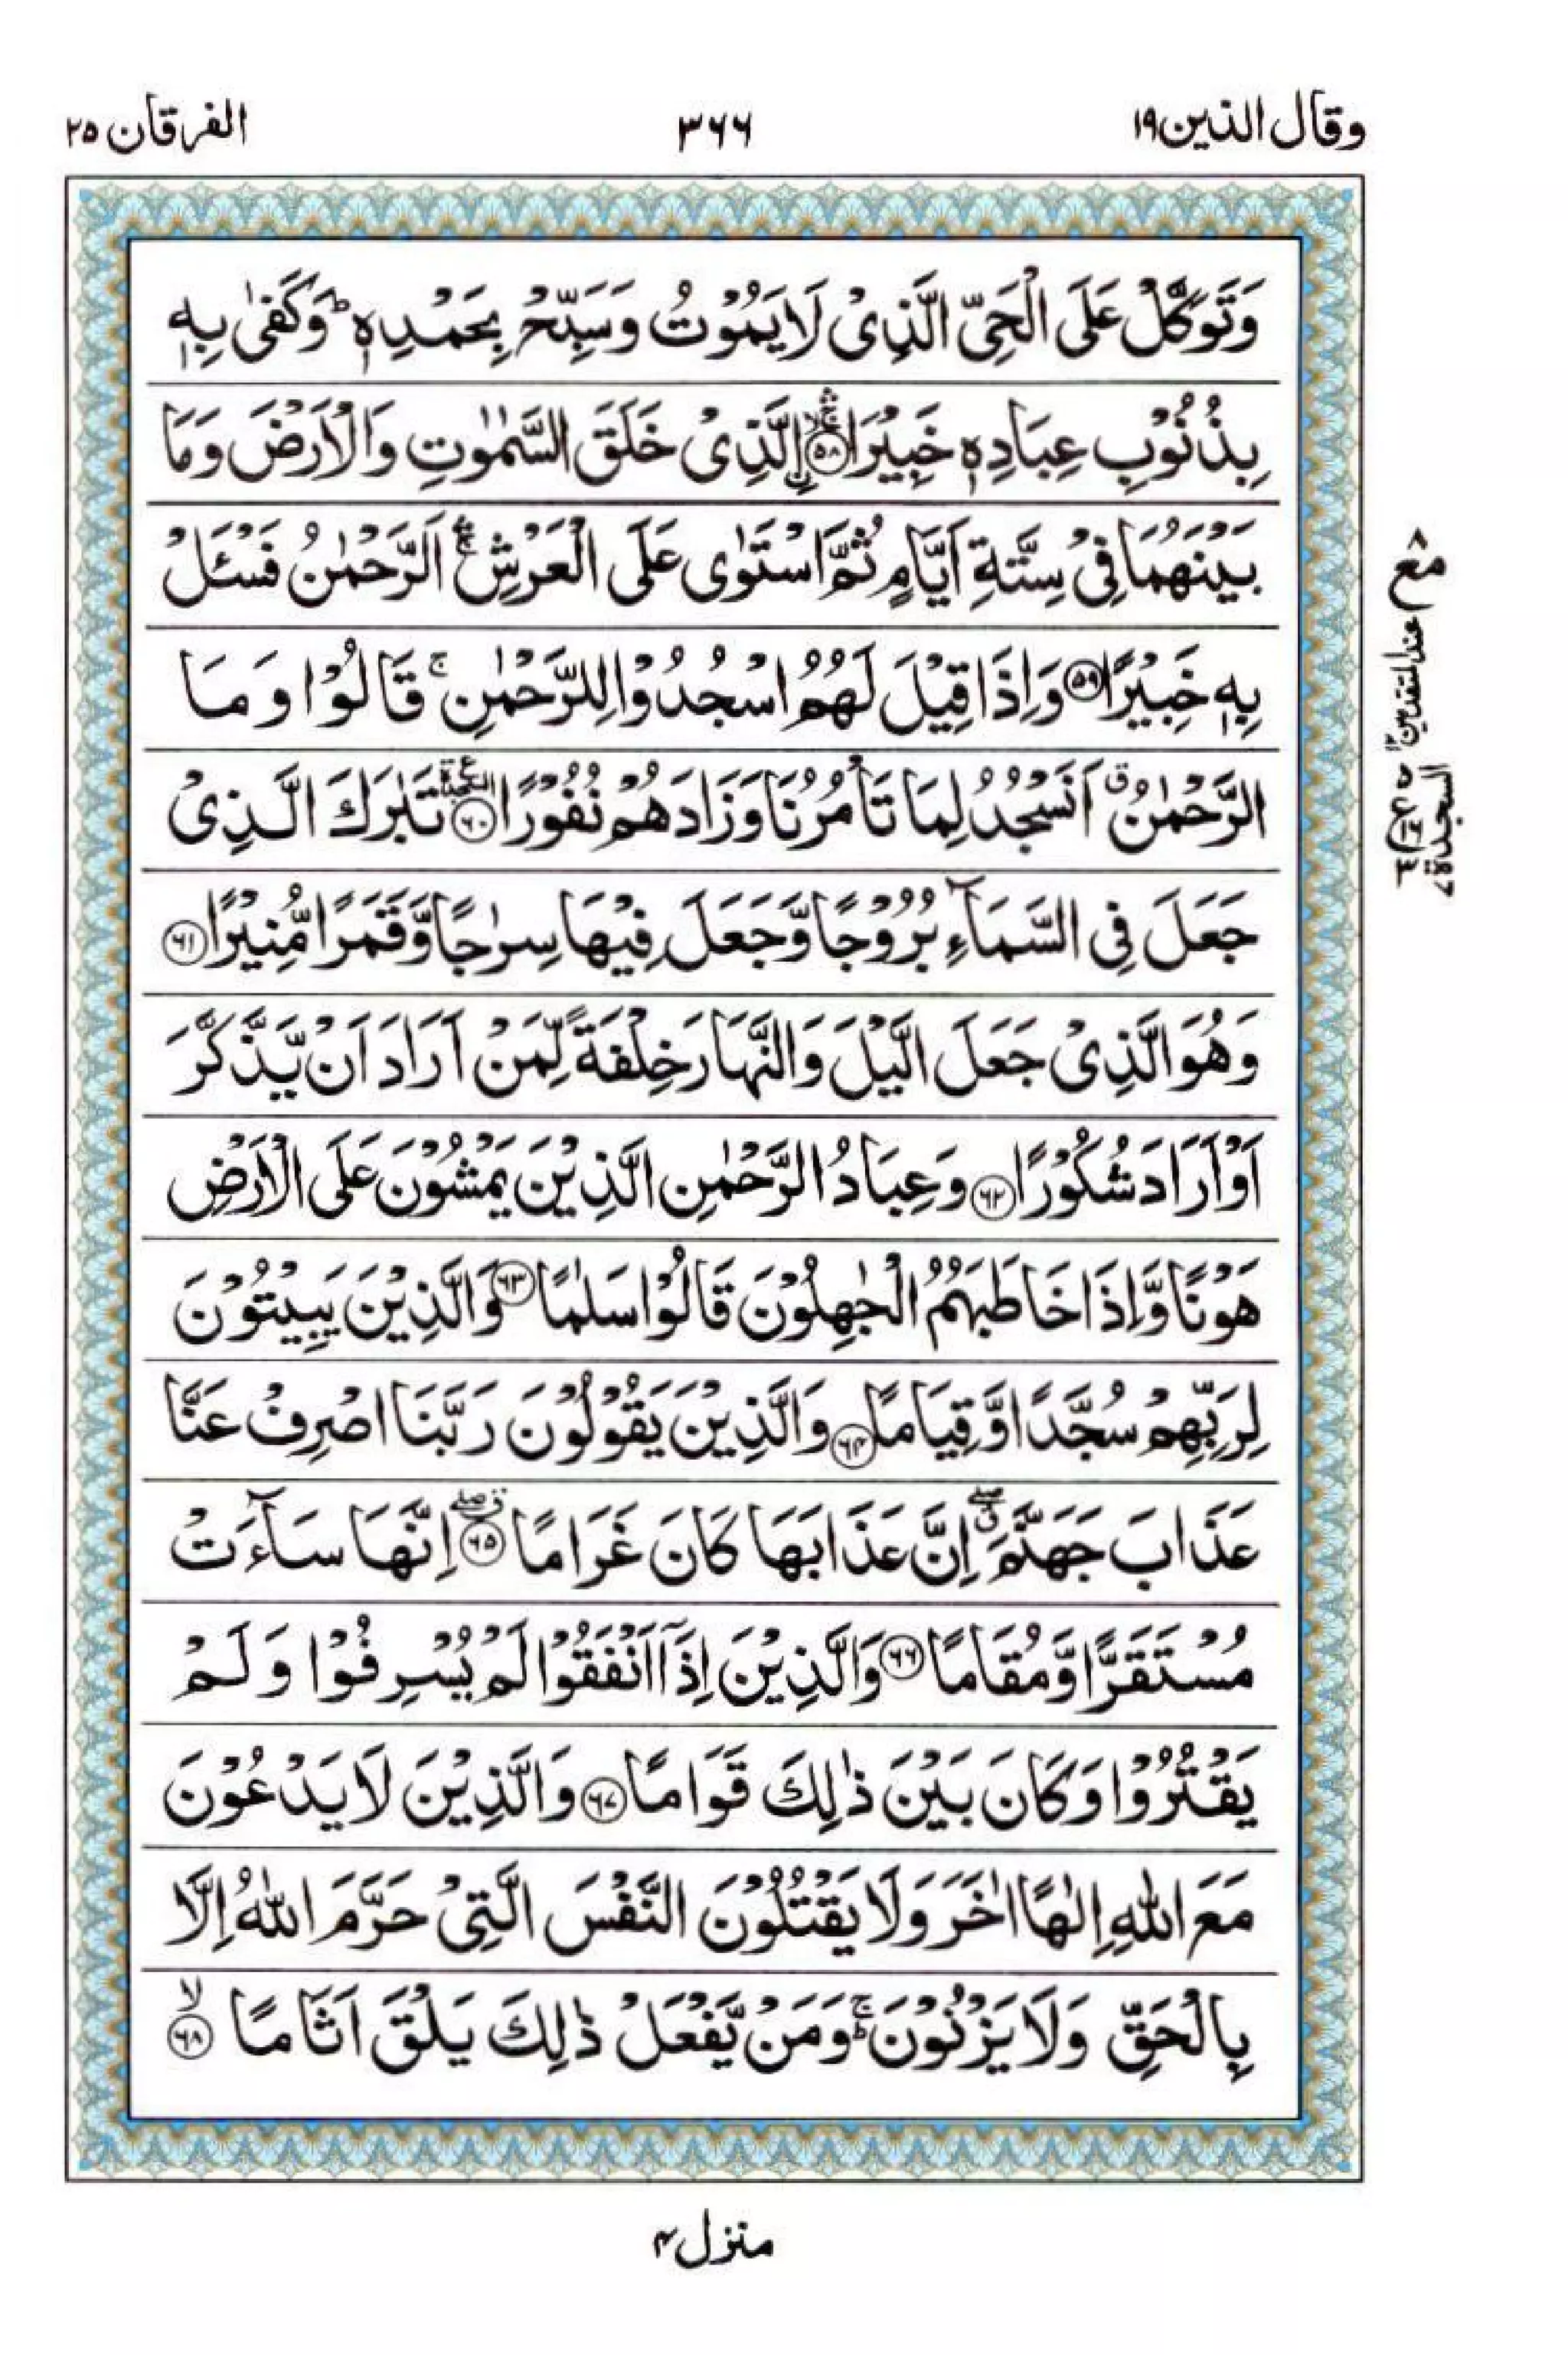 وقال الذین ۱۹
۳۶۶
الفرقان ۲۵
وَتَوَكَّلْ عَلَى الْحَیِّ الَّذِیْ لَا یَمُوْتُ وَسَبِّحْ بِحَمْدِهٖ ؕ وَكَفٰی بِهٖ
بِذُنُوْبِ عِبَادِهٖ خَبِیْرَا ۛۚ ۙ ﴿۵۸﴾ اِ۟لَّذِیْ خَلَقَ السَّمٰوٰتِ وَالْاَرْضَ وَمَا
بَیْنَهُمَا فِیْ سِتَّةِ اَیَّامٍ ثُمَّ اسْتَوٰی عَلَى الْعَرْشِ ۛۚ اَلرَّحْمٰنُ فَسْـَٔلْ
بِهٖ خَبِیْرًا ﴿۵۹﴾ وَاِذَا قِیْلَ لَهُمُ اسْجُدُوْا لِلرَّحْمٰنِ ۚ قَالُوْا وَمَا
الرَّحْمٰنُ ۗ اَنَسْجُدُ لِمَا تَاْمُرُنَا وَزَادَهُمْ نُفُوْرًا ﴿۶۰﴾ ع السجدة تَبٰرَكَ الَّذِیْ
جَعَلَ فِی السَّمَآءِ بُرُوْجًا وَّجَعَلَ فِیْهَا سِرٰجًا وَّقَمَرًا مُّنِیْرًا ﴿۶۱﴾
وَهُوَ الَّذِیْ جَعَلَ الَّیْلَ وَالنَّهَارَ خِلْفَةً لِّمَنْ اَرَادَ اَنْ یَّذَّكَّرَ
اَوْ اَرَادَ شُكُوْرًا ﴿۶۲﴾ وَعِبَادُ الرَّحْمٰنِ الَّذِیْنَ یَمْشُوْنَ عَلَى الْاَرْضِ
هَوْنًا وَّاِذَا خَاطَبَهُمُ الْجٰهِلُوْنَ قَالُوْا سَلٰمًا ﴿۶۳﴾ وَالَّذِیْنَ یَبِیْتُوْنَ
لِرَبِّهِمْ سُجَّدًا وَّقِیَامًا ﴿۶۴﴾ وَالَّذِیْنَ یَقُوْلُوْنَ رَبَّنَا اصْرِفْ عَنَّا
عَذَابَ جَهَنَّمَ ۖۗ اِنَّ عَذَابَهَا كَانَ غَرَامًا ۖ ﴿۶۵﴾ اِنَّهَا سَآءَتْ
مُسْتَقَرًّا وَّمُقَامًا ﴿۶۶﴾ وَالَّذِیْنَ اِذَاۤ اَنْفَقُوْا لَمْ یُسْرِفُوْا وَلَمْ
یَقْتُرُوْا وَكَانَ بَیْنَ ذٰلِكَ قَوَامًا ﴿۶۷﴾ وَالَّذِیْنَ لَا یَدْعُوْنَ
مَعَ اللّٰهِ اِلٰهًا اٰخَرَ وَلَا یَقْتُلُوْنَ النَّفْسَ الَّتِیْ حَرَّمَ اللّٰهُ اِلَّا
بِالْحَقِّ وَلَا یَزْنُوْنَ ۚؕ وَمَنْ یَّفْعَلْ ذٰلِكَ یَلْقَ اَثَامًا ۙ ﴿۶۸﴾
مع ۸
عند المتقدمین ۱۲
السجدة ۷
منزل ۴